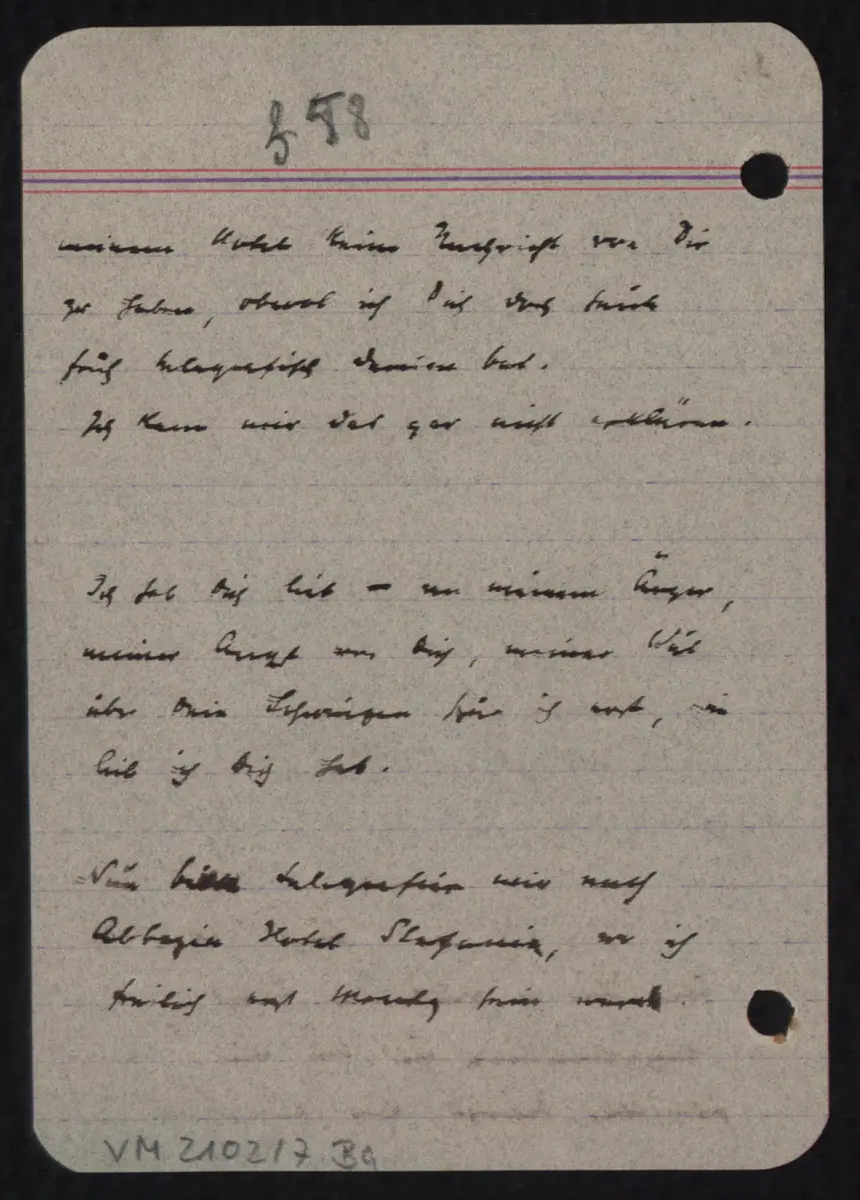 588
meinem Hotel keine Nachricht von Dir
zu haben, obwol ich Dich doch heute
früh telegrafisch darum bat.
Ich kann mir das gar nicht erklären.
Ich hab Dich lieb – an meinem Ärger,
meiner Angst um Dich, meiner Wut
über Dein Schweigen spür ich erst, wie
lieb ich Dich hab.
Nun bitte telegrafier mir nach
Abbazia Hotel Stefanie, wo ich
freilich erst Montag sein werde.
VM 210217 Ba